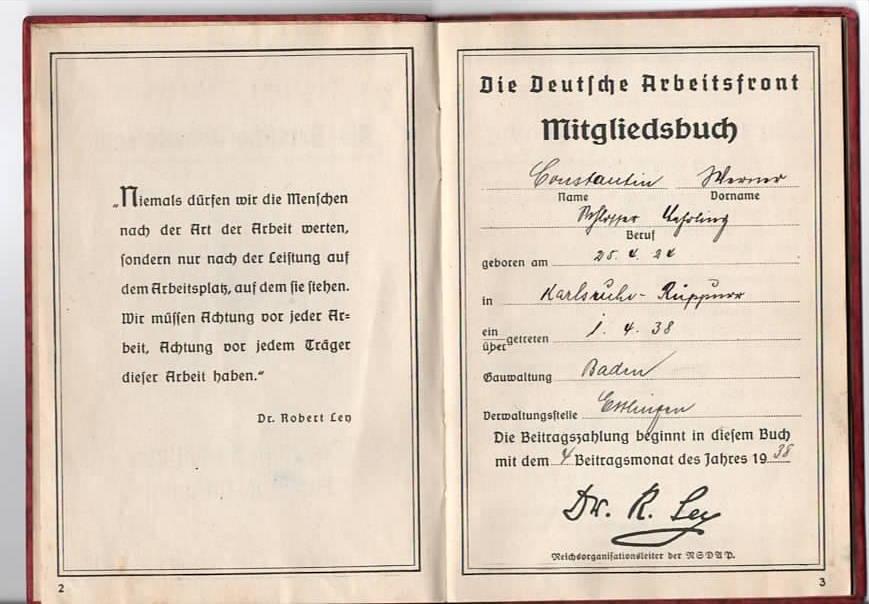 „Niemals dürfen wir die Menschen
nach der Art der Arbeit werten,
sondern nur nach der Leistung auf
dem Arbeitsplatz, auf dem sie stehen.
Wir müssen Achtung vor jeder Ar=
beit, Achtung vor jedem Träger
dieser Arbeit haben.“
Dr. Robert Ley
2
Die Deutsche Arbeitsfront
Mitgliedsbuch
Constantin Werner
Name Vorname
Schlosser Lehrling
Beruf
geboren am 25. 4. 24
in Karlsruhe-Rüppurr
ein
über getreten 1. 4. 38
Gauwaltung Baden
Verwaltungsstelle Ettlingen
Die Beitragszahlung beginnt in diesem Buch
mit dem 4 Beitragsmonat des Jahres 1938
Dr. R. Ley
Reichsorganisationsleiter der NSDAP.
3